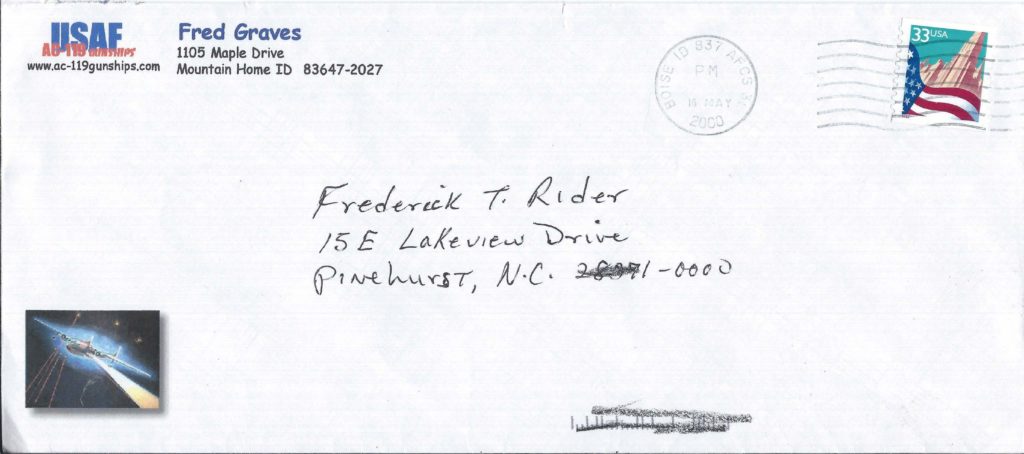 USAF
AC-119 GUNSHIPS
www.ac-119gunships.com
Fred Graves
1105 Maple Drive
Mountain Home ID 83647-2027
BOISE ID 837 AFCS
PM
16 MAY
2000
33USA
Frederick T. Rider
15 E Lakeview Drive
Pinehurst, N.C.